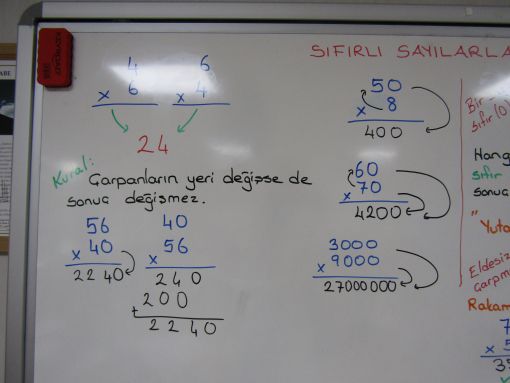 SIFIRLI SAYILARLA
4 6
x 6 x 4
24
Kural:
Çarpanların yeri değişse de
sonuç değişmez.
56 40
x 40 x 56
2240 240
200
+
2240
50
x 8
400
60
x 70
4200
3000
x 9000
27000000
Bir
sıfır(0)
Hang
sıfır
sonuc
"Yuta
Eldesiz
çarpm
Rakam
7
x 5
35